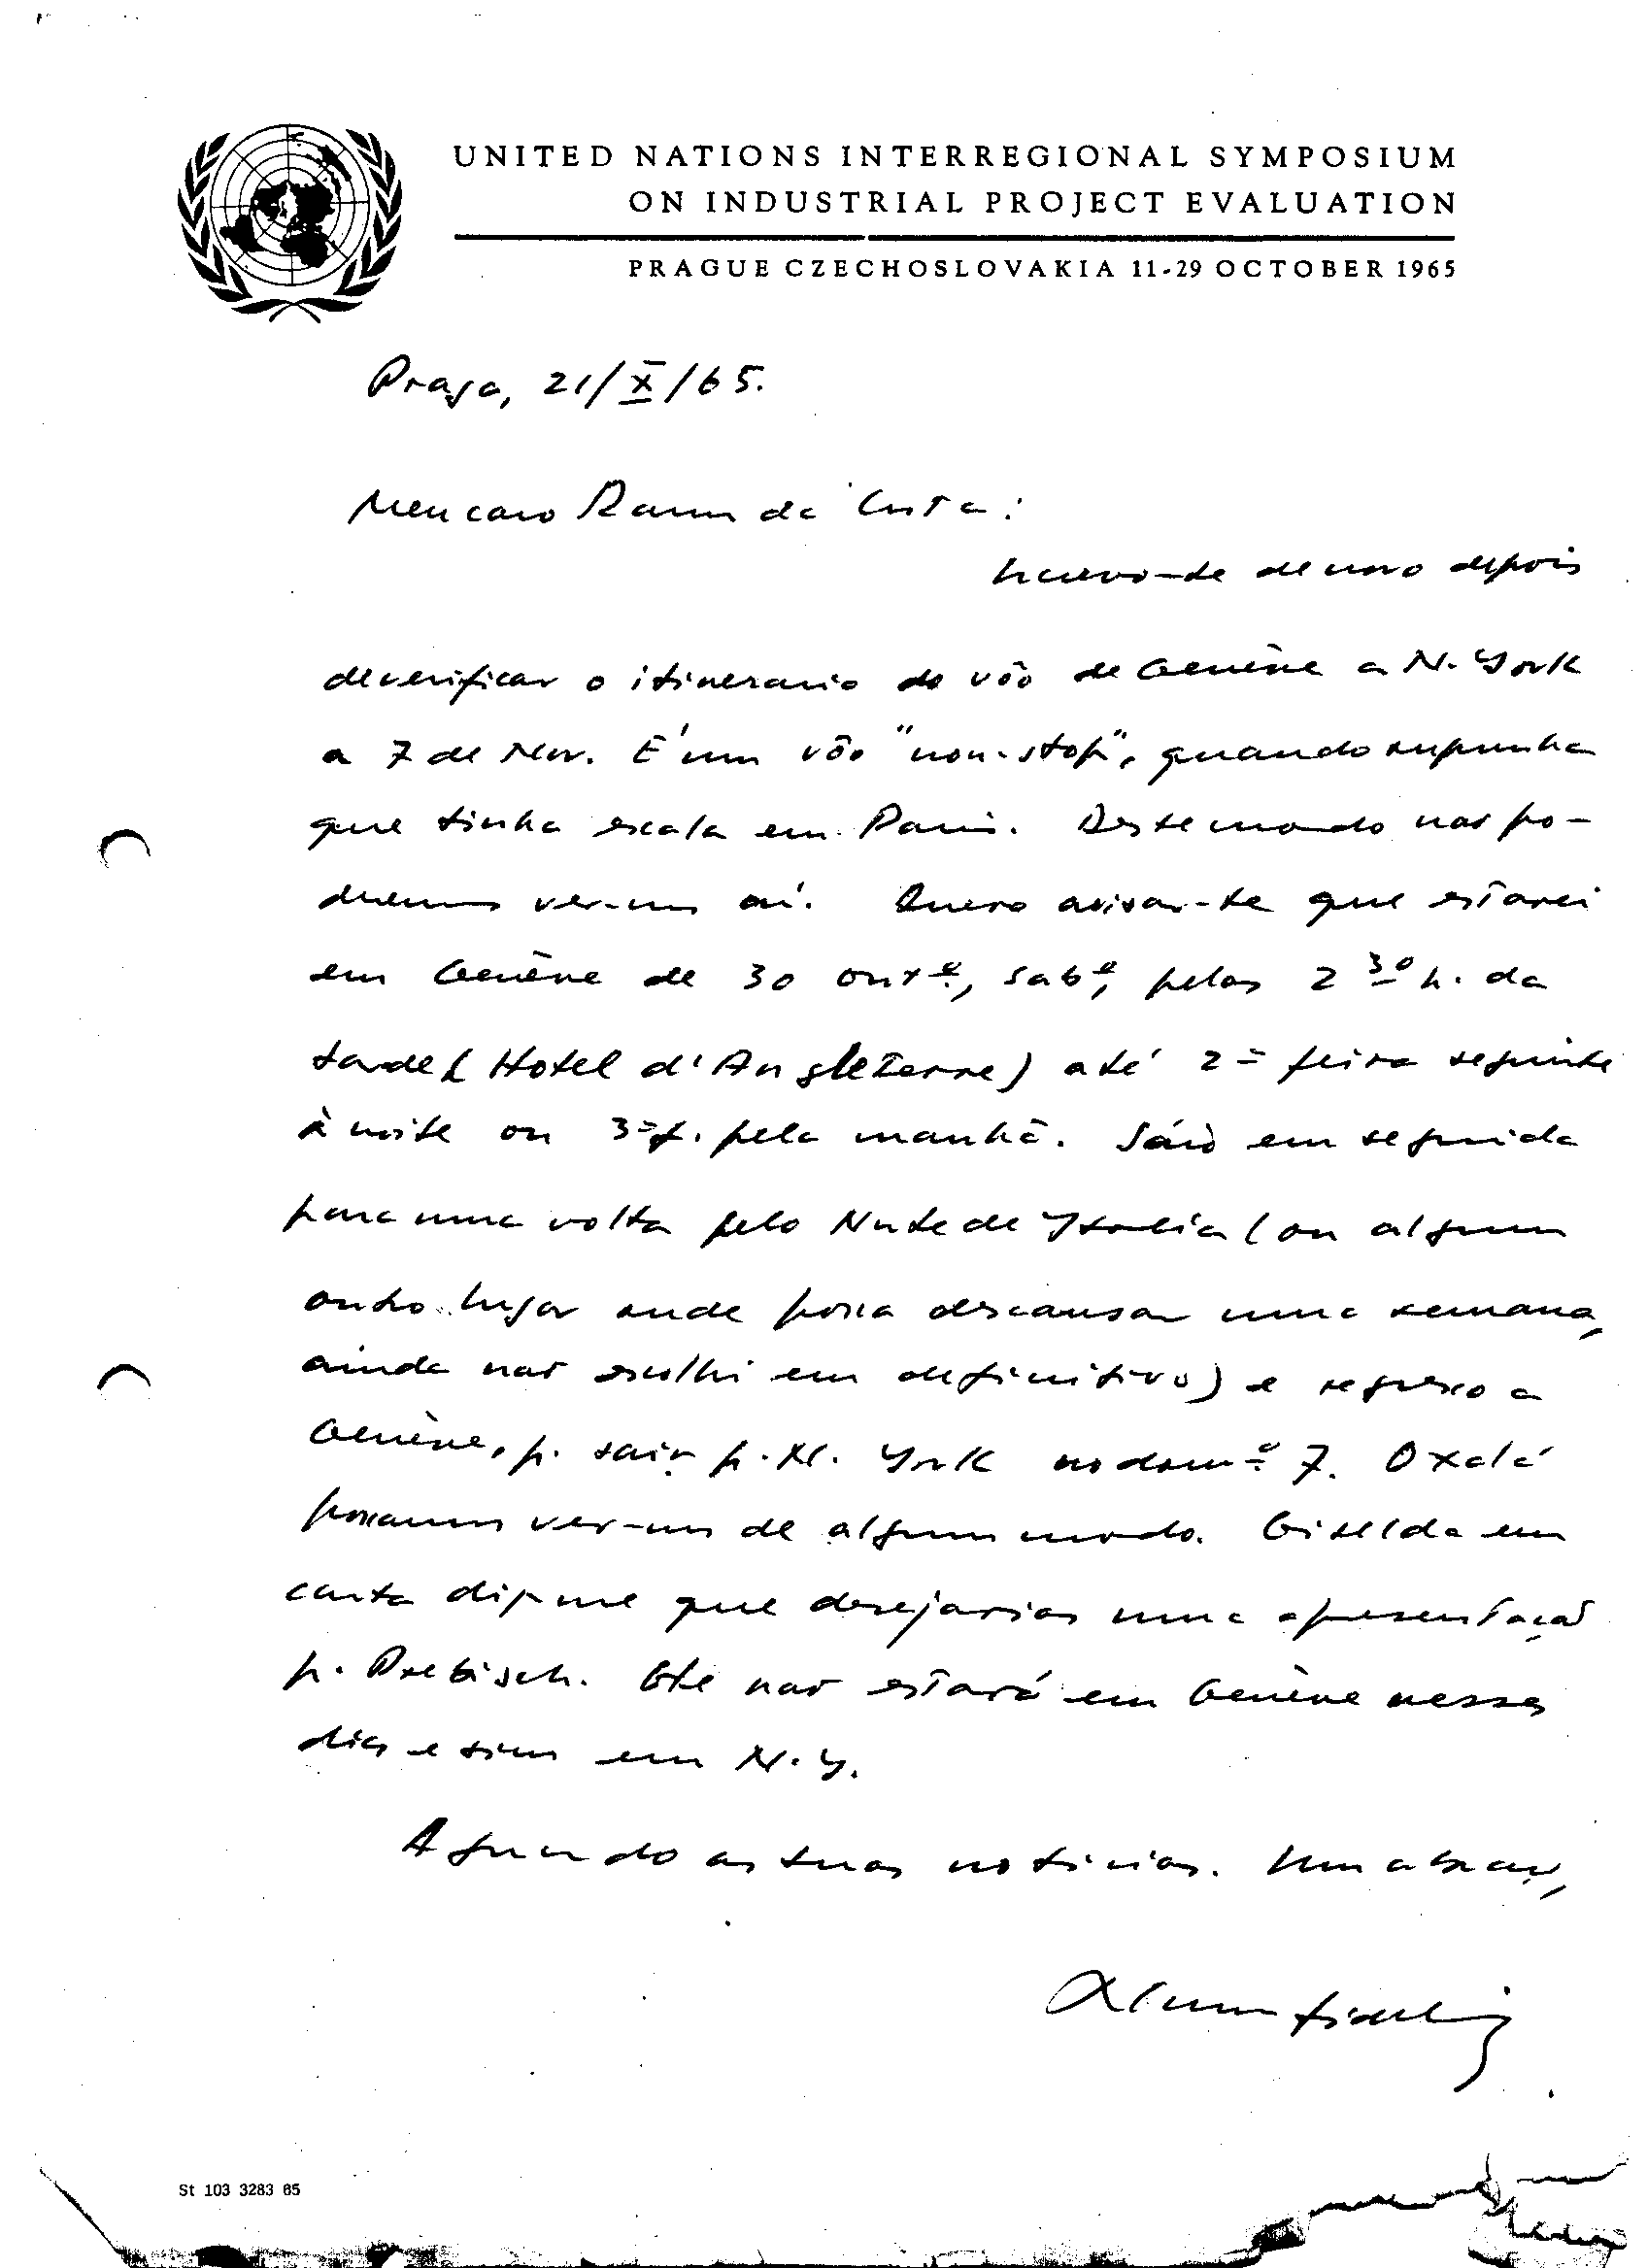 UNITED NATIONS INTERREGIONAL SYMPOSIUM
ON INDUSTRIAL PROJECT EVALUATION
PRAGUE CZECHOSLOVAKIA 11-29 OCTOBER 1965
Praga, 21/X/65.
Meu caro Ramos da Costa:
Escrevo-te de novo depois
de verificar o itinerario do vôo de Genène a N. York
a 7 de Nov. É um vôo "non-stop", quando supunha
que tinha escala em Paris. Deste modo não po-
deremos ver-nos aí. Quero avisar-te que estarei
em Genève de 30 outº, sabº, pelas 2 30 h. da
tarde (Hotel d'Angleterre) até 2ª feira seguinte
à noite ou 3ª f. pela manhã. Sáio em seguida
para uma volta pelo Norte de Italia (ou algum
outro lugar onde possa descansar uma semana,
ainda não escolhi em definitivo) e regresso a
Genève, p. sair p. N. York no domº 7. Oxalá
possamos ver-nos de algum modo. Giselda em
carta diz-me que desejarias uma apresentação
p. Prebisch. Ele não estará em Genève nesses
dias e sim em N.Y.
Aguardo as tuas noticias. Um abraço,
St 103 3283 65